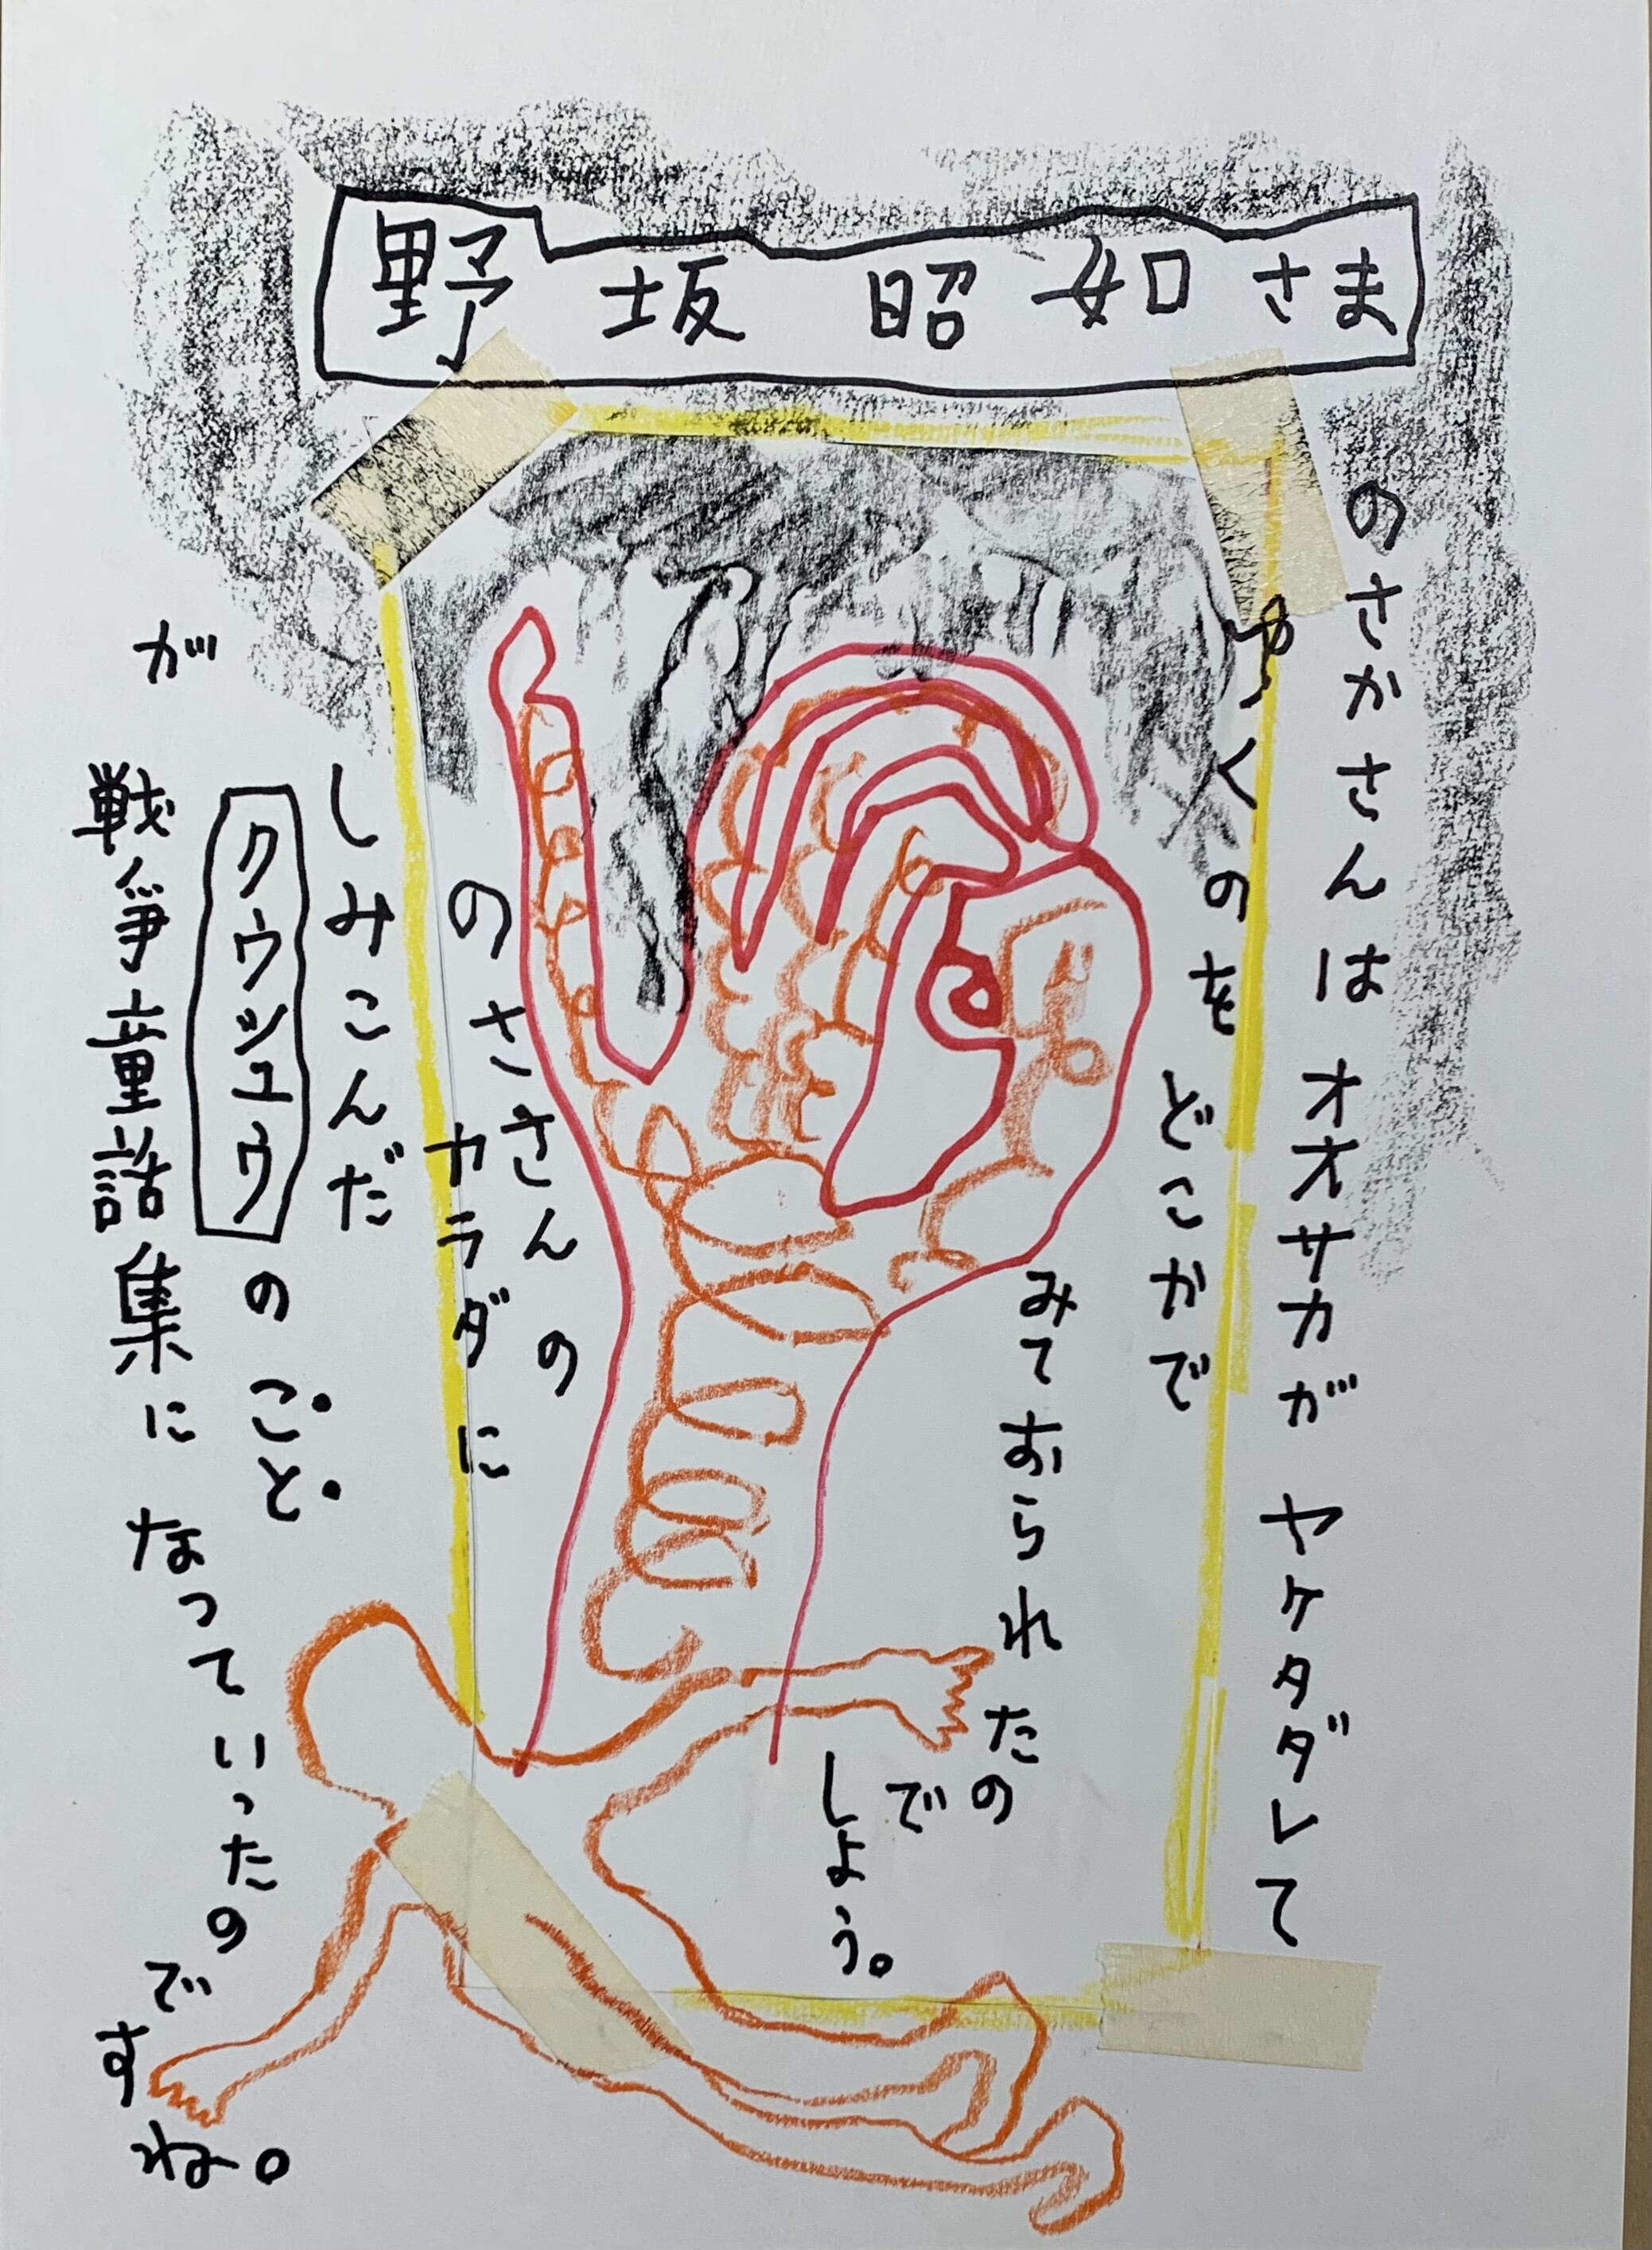 野坂昭如さま
のさかさんは オオサカが ヤケタダレて
ゆくのを どこかで
みておられたの
で
しょう。
のささんの
カラダに
しみこんだ
クウシュウ の こと
が 戦争童話集に なっていったのですね。